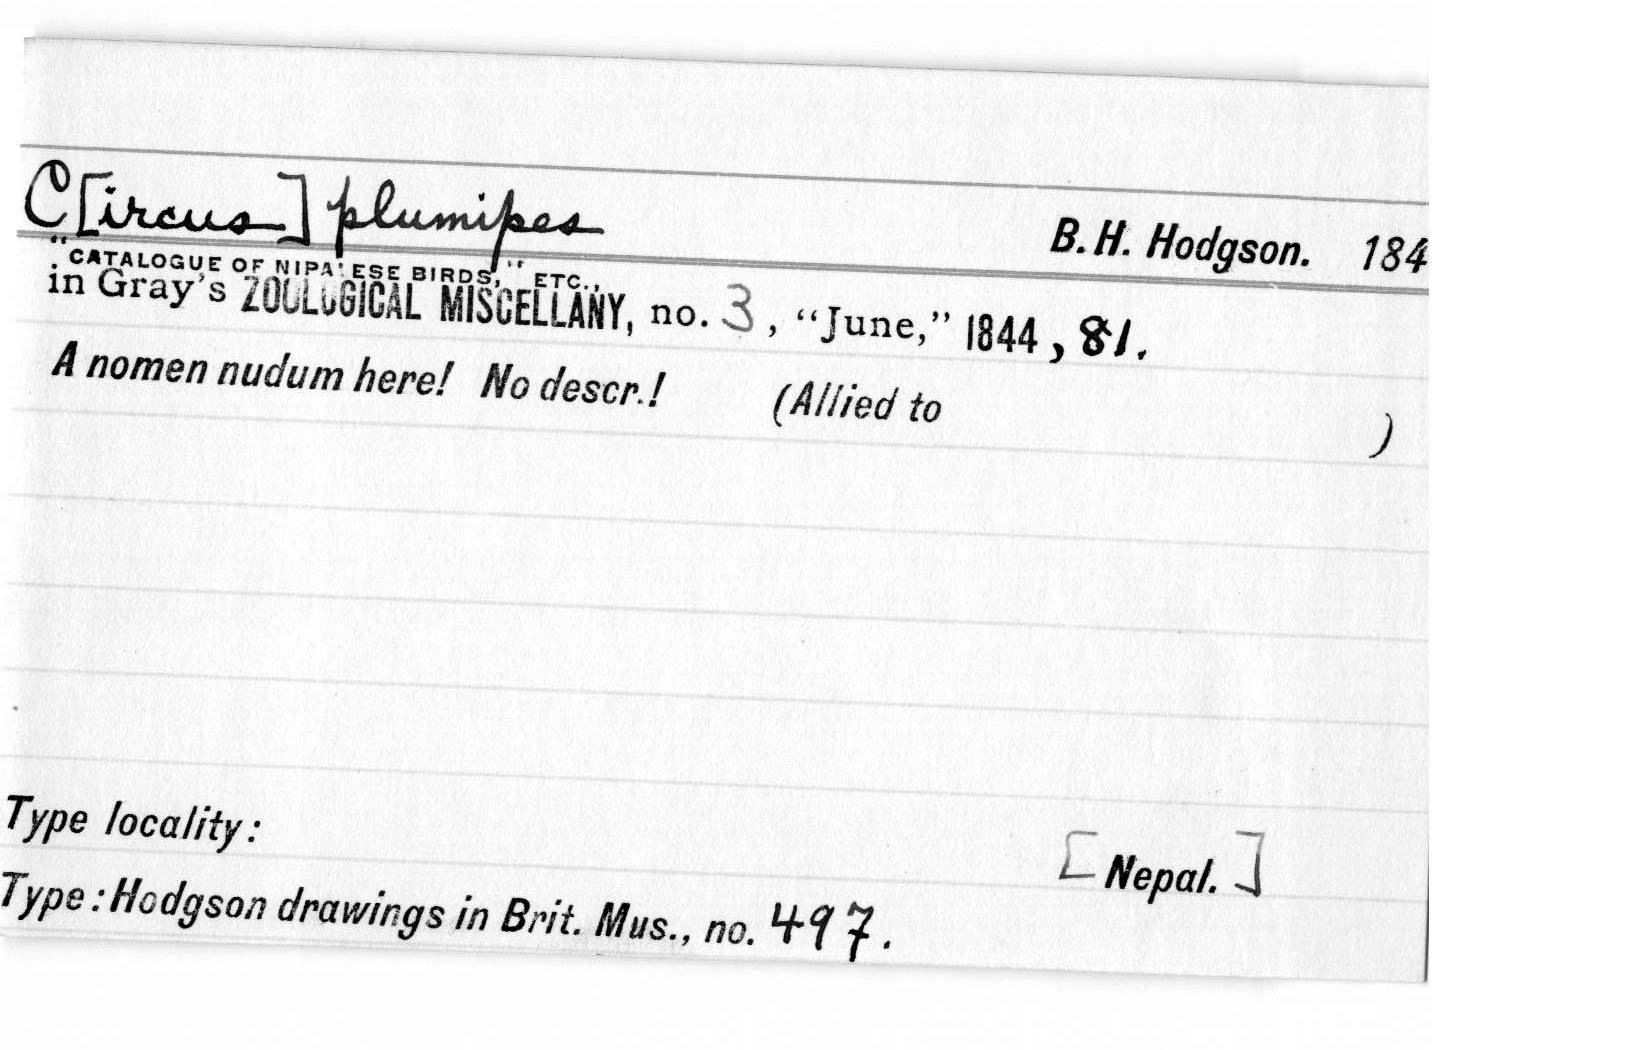 C[ircus] plumipes B. H. Hodgson. 184
"CATALOGUE OF NIPALESE BIRDS," ETC.,
in Gray's ZOOLOGICAL MISCELLANY, no. 3, “June,” 1844, 81.
A nomen nudum here! No descr.! (Allied to )
Type locality: [Nepal.]
Type: Hodgson drawings in Brit. Mus., no. 497.